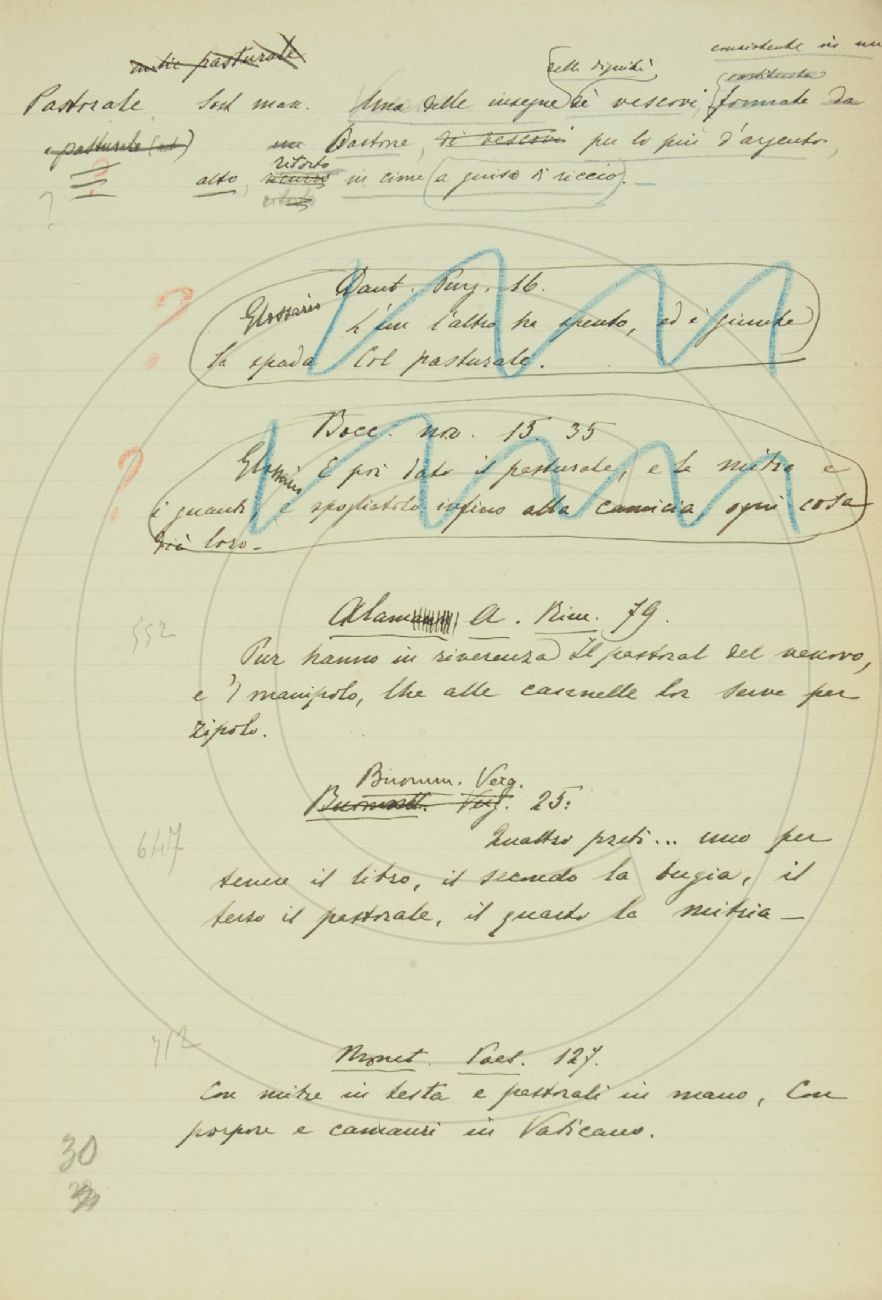 antic. pasturale
della dignità consistente in un
costituita
Pastorale. Sost. mas. Una delle insegne de' vescovi, formata da
e pasturale (ant.) un Bastone, di vescovi per lo più d'argento,
ritorto
? alto, ricurvo in cima a guisa di riccio.
ritorto
?
Dant. Purg. 16.
Glossario L'un l'altro ha spento, ed è giunta
la spada Col pasturale.
?
Bocc. nov. 15 35
Glossario E poi dato il pasturale, e la mitra e
i guanti e spogliatolo infino alla camicia, ogni cosa
diè loro.
Alamanni A. Rim. 79.
552
Pur hanno in riverenza Il pastoral del vescovo,
e 'l manipolo, Che alle casnelle lor serve per
zipolo.
Buomm. Verg.
Buomatt. Verg. 25:
647
Quattro preti... uno per
tenere il libro, il secondo la bugia, il
terzo il pastorale, il quarto la mitria —
712
Poet. 127.
Con mitre in testa e pastorali in mano, Con
porpore e camauri in Vaticano.
30